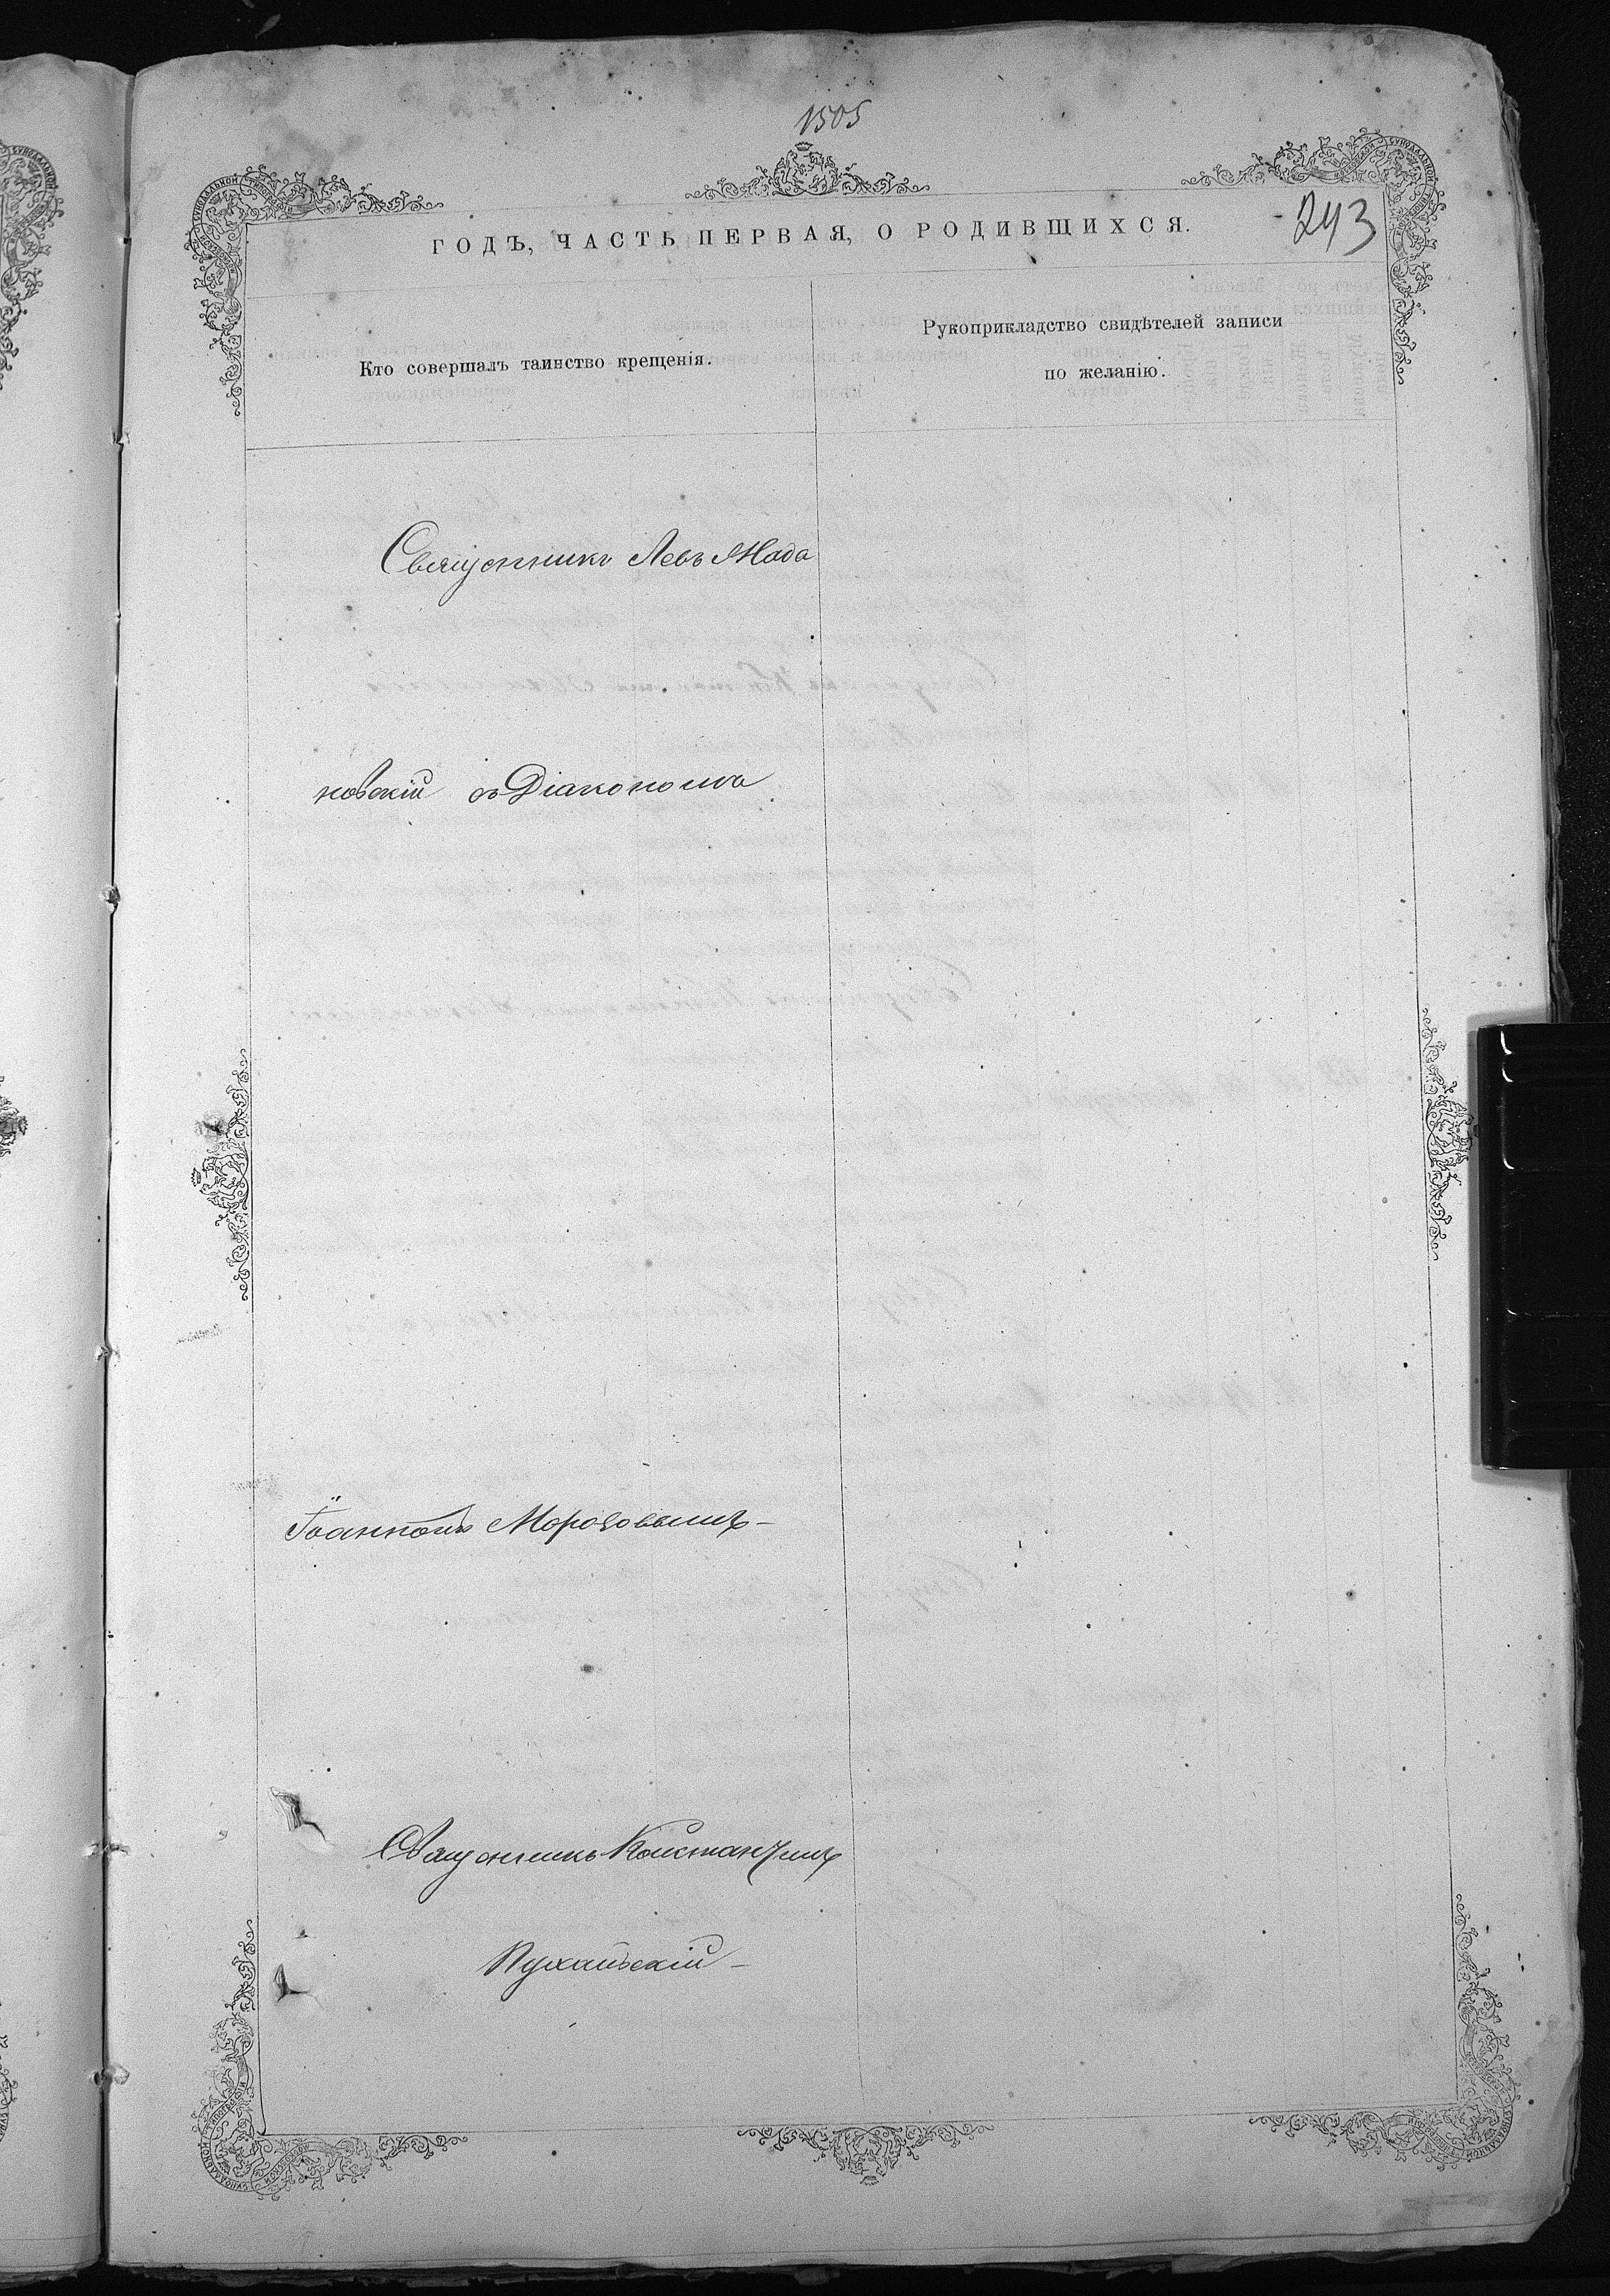 1505
ГОДЪ, ЧАСТЬ ПЕРВАЯ, О РОДИВШИХСЯ.
293
Кто совершалъ таинство крещенія.
Рукоприкладство свидѣтелей записи
по желанію.
Священникъ Левъ
новскій съ Діакономъ
Іоанномъ Морозовымъ
Священникъ Константинъ